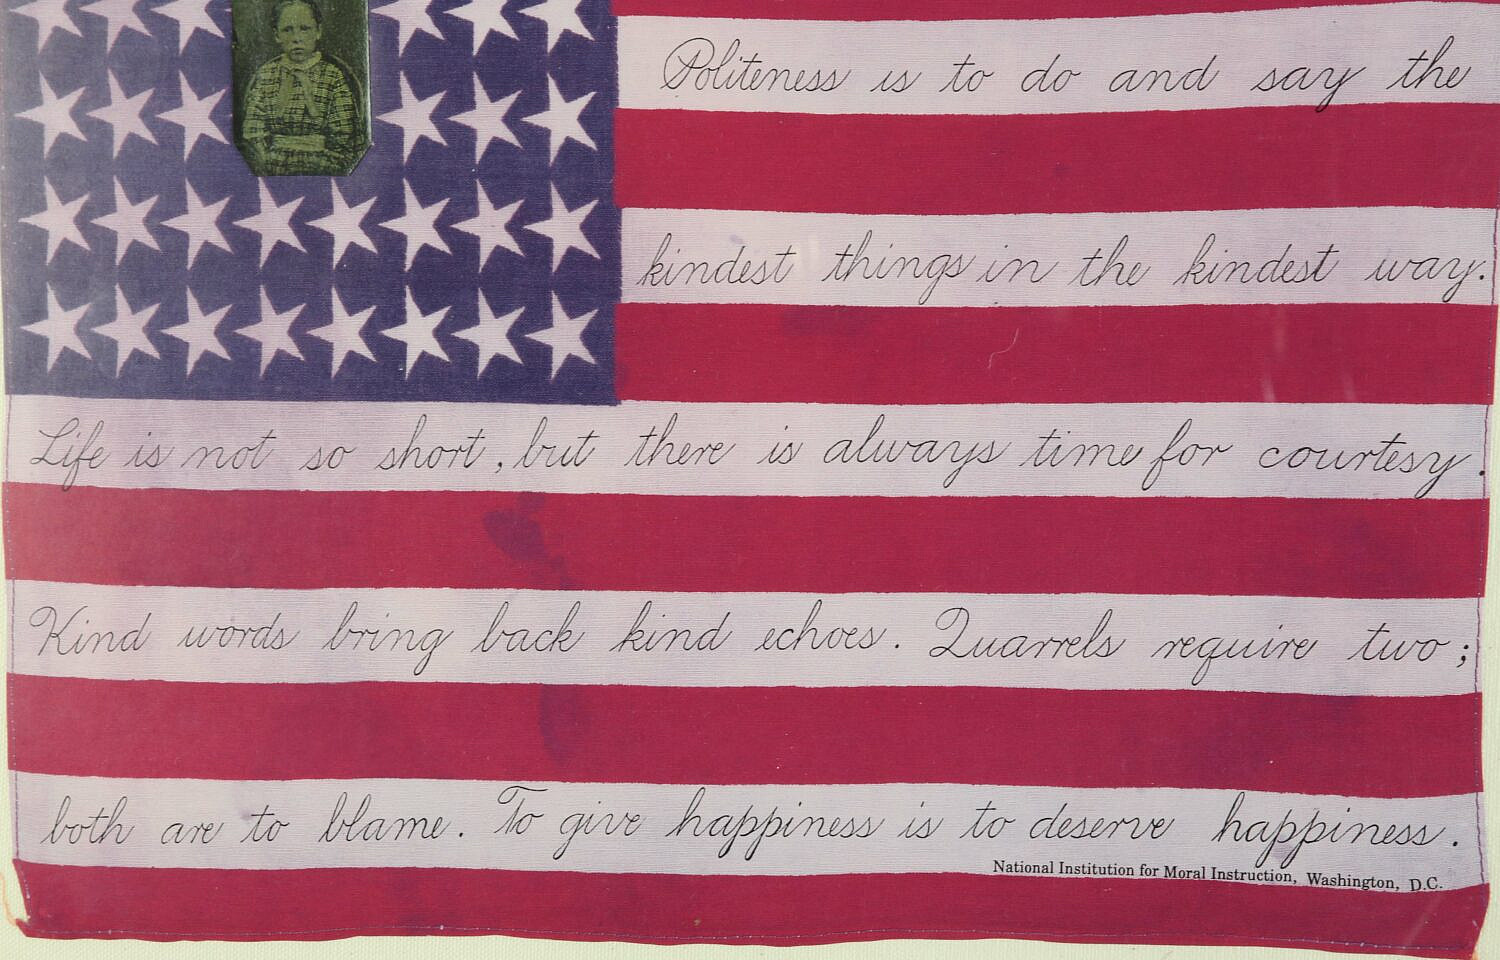 Politeness is to do and say the
kindest things in the kindest way.
Life is not so short, but there is always time for courtesy.
Kind words bring back kind echoes. Quarrels require two;
both are to blame. To give happiness is to deserve happiness.
National Institution for Moral Instruction, Washington, D.C.